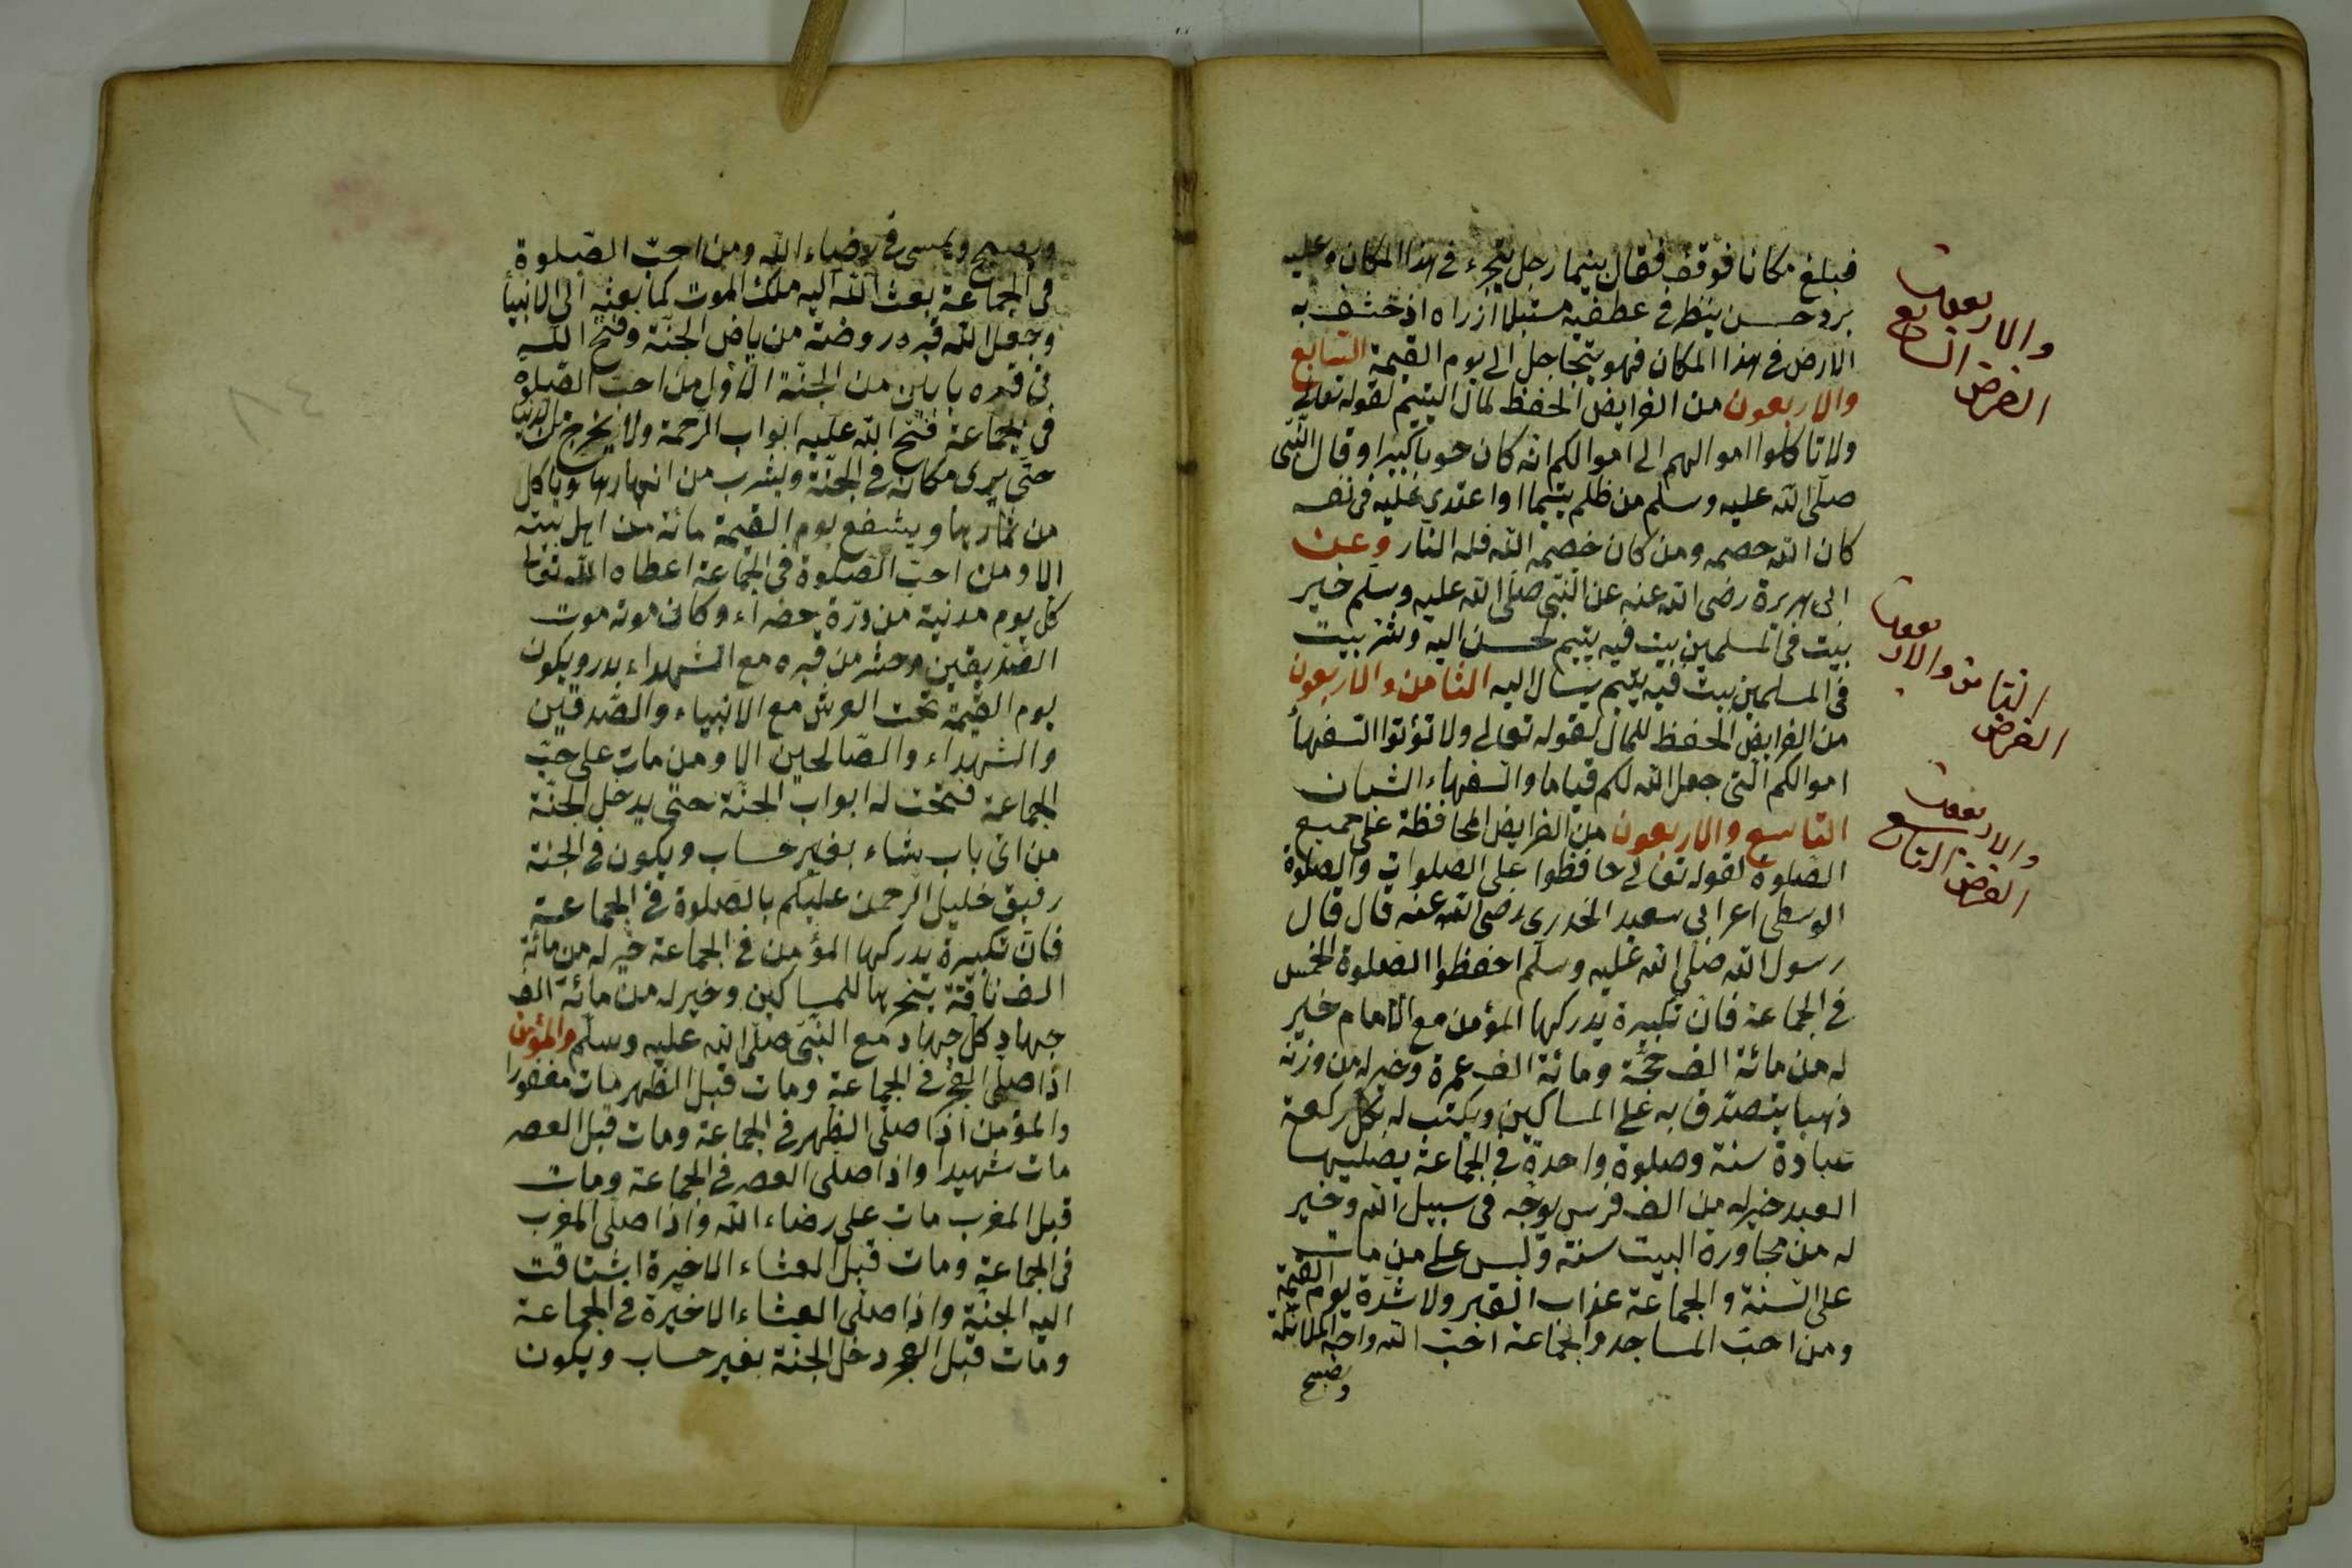 فبلغ مكانا فوقف فقال بينما رجل يتجرء في هذا المكان وعليه
برد حسن ينظر في عطفيه مستبلا ازراه اذ خسف به
الارض في هذا المكان فهو يتجاجل الى يوم القيمة السابع
والاربعون من الفرايض الحفظ لمال اليتيم لقوله تعالى
ولا تاكلوا اموالهم الى اموالكم انه كان حوبا كبيرا وقال النبّى
صلّى الله عليه وسلم من ظلم يتيما او اعتدي عليه في نفسه
كان الله خصمه ومن كان خصمه الله فله النار وعن
ابى هريرة رضى الله عنه عن النّبى صلّى الله عليه وسلّم خير
بيت في المسلمين بيت فيه يتيم يحسن اليه وشرّ بيت
في المسلمين بيت فيه يتيم يسال اليه الثامن والاربعون
من الفرايض الحفظ للمال لقوله تعالى ولا تؤتوا السفهاء
اموالكم الّتى جعل الله لكم قياما والسفهاء الشبان
التاسع والاربعون من الفرايض المحافظة على جميع
الصّلوة لقوله تعالى حافظوا على الصلوات والصلوة
الوسطى اعرابى سعيد الخدرى رضى الله عنه قال قال
رسول الله صلّى الله عليه وسلّم احفظوا الصلوة الخمس
في الجماعة فانّ تكبيرة يدركها المؤمن مع الامام خير
له من مائة الف حجّة ومائة الف عمرة وخير له من وزنه
ذهبا يتصدّق به على المساكين ويكتب له بكلّ ركعة
عبادة سنة وصلوة واحدة في الجماعة يصليها
العبد خير له من الف فرس يوجّه في سبيل الله وخير
له من مجاورة البيت سنة وليس على من مات
على السّنة والجماعة عذاب القبر ولا شدّة يوم القيمة
ومن احبّ المساجد والجماعة احبّ الله واحبه الملائكة
ويصبح
والاربعون
الفرض السابع
الثامن والاربعون
الفرض
والاربعون
الفرض التاسع
ويصبح ويمسى في رضاء الله ومن احبّ الصّلوة
في الجماعة بعث الله اليه ملك الموت كما بعثه الى الانبيأ
وجعل الله قبره روضة من رياض الجنّة وفتح الله
في قبره بابين من الجنّة الاوّل من احبّ الصّلوة
في الجماعة فتح الله عليه ابواب الرحمة ولا يخرج من الدنيا
حتّى يرى مكانه في الجنّة ويشرب من انهارها وياكل
من ثمارها ويشفع يوم القيمة مائة من اهل بيته
الا ومن احبّ الصّلوة في الجماعة اعطاه الله تعالى
كل يوم مدنية من درّة خضراء وكان موته موت
الصّدّيقين وحشر من قبره مع الشهداء بدر ويكون
يوم القيمة تحت العرش مع الانبياء والصّدقين
والشهداء والصّالحين الا ومن مات على حبّ
الجماعة فتحت له ابواب الجنّة حتّى يدخل الجنّة
من اىّ باب شاء بغير حساب ويكون في الجنة
رفيق خليل الرحمن عليكم بالصّلوة في الجماعة
فانّ تكبيرة يدركها المؤمن في الجماعة خير له من مائة
الف ناقة ينحرها للمساكين وخير له من مائة الف
جهاد كلّ جهاد مع النّبى صلّى الله عليه وسلّم والمؤمن
اذا صلّى الفجر في الجماعة ومات قبل الظهر مات مغفورا
والمؤمن اذا صلّى الظهر في الجماعة ومات قبل العصر
مات شهيدا واذا صلّى العصر في الجماعة ومات
قبل المغرب مات على رضاء الله واذا صلّى المغرب
في الجماعة ومات قبل العشاء الاخيرة اشتاقت
اليه الجنّة واذا صلّى العشاء الاخيرة في الجماعة
ومات قبل الفجر دخل الجنّة بغير حساب ويكون